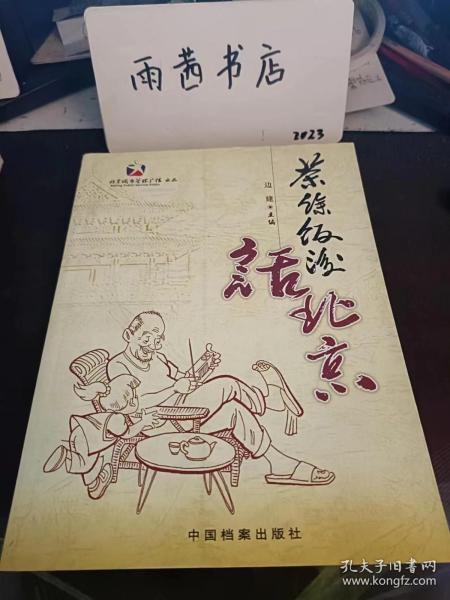 雨茜书店
2023
北京城市管理广播 出品
Beijing Public Service Radio
边建 主编
茶餘飯後
話北京
中国档案出版社
孔夫子旧书网
www.kongfz.com